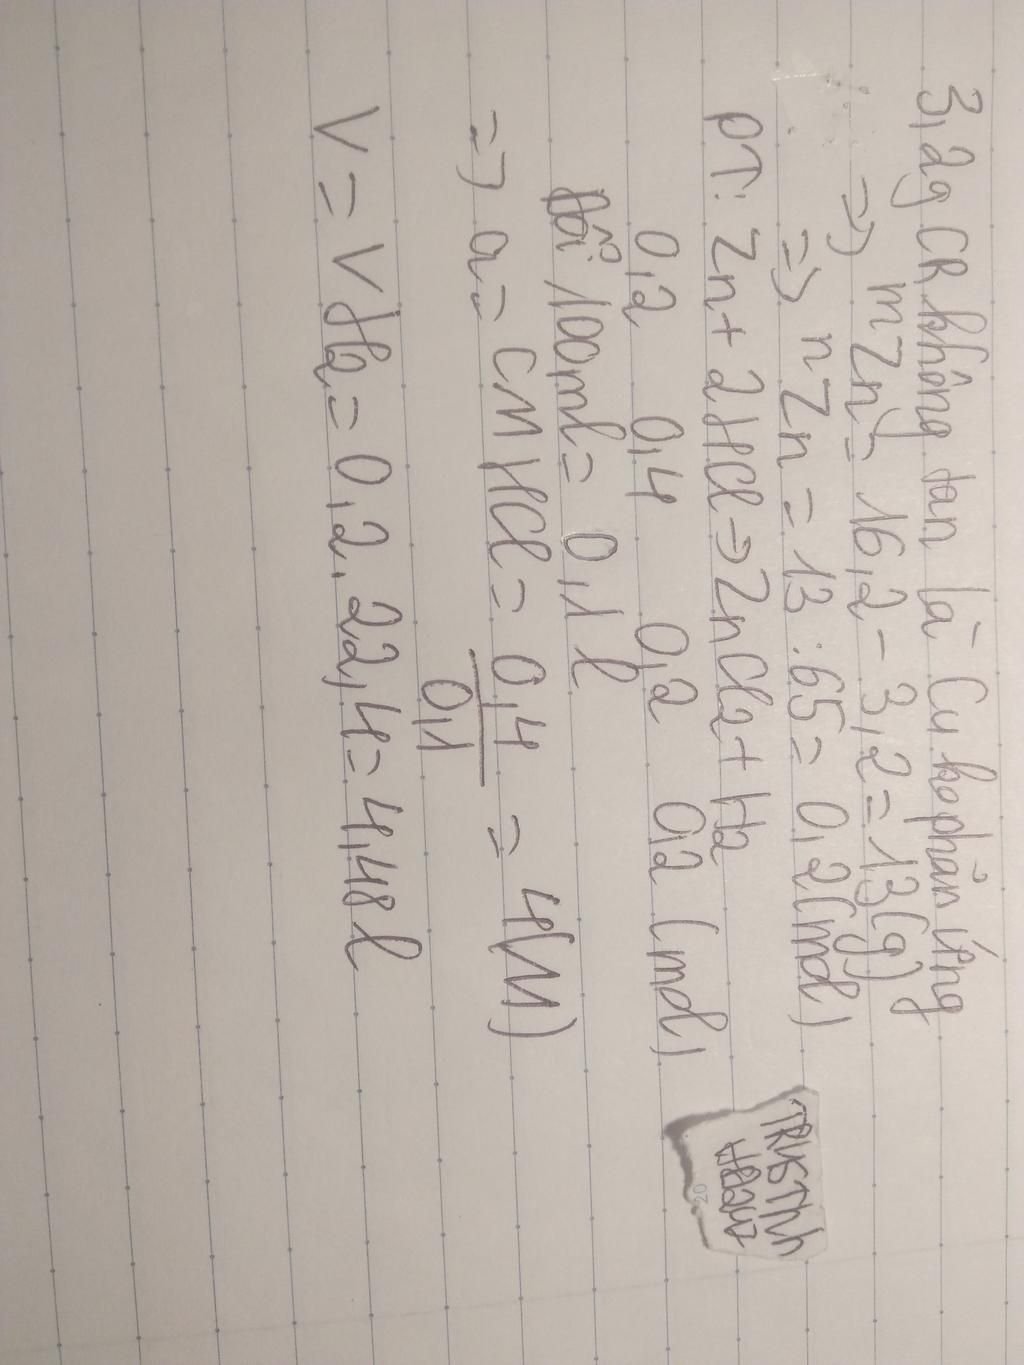 3,2g CR không tan là Cu ko phản ứng
=> mZn = 16,2 - 3,2 = 13(g)
=> nZn = 13 : 65 = 0,2(mol)
PT: Zn + 2HCl => ZnCl2 + H2
0,2 0,4 0,2 0,2 (mol)
Đổi 100ml = 0,1 l
=> a = CM HCl = 0,4 = 4(M)
0,1
V = VH2 = 0,2.22,4 = 4,48 l